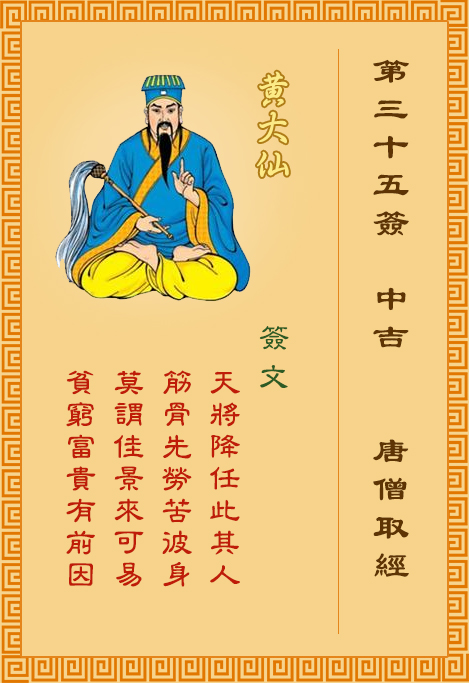 第三十五簽 中吉 唐僧取經
黃大仙
簽文
天將降任此其人
筋骨先勞苦彼身
莫謂佳景來可易
貧窮富貴有前因